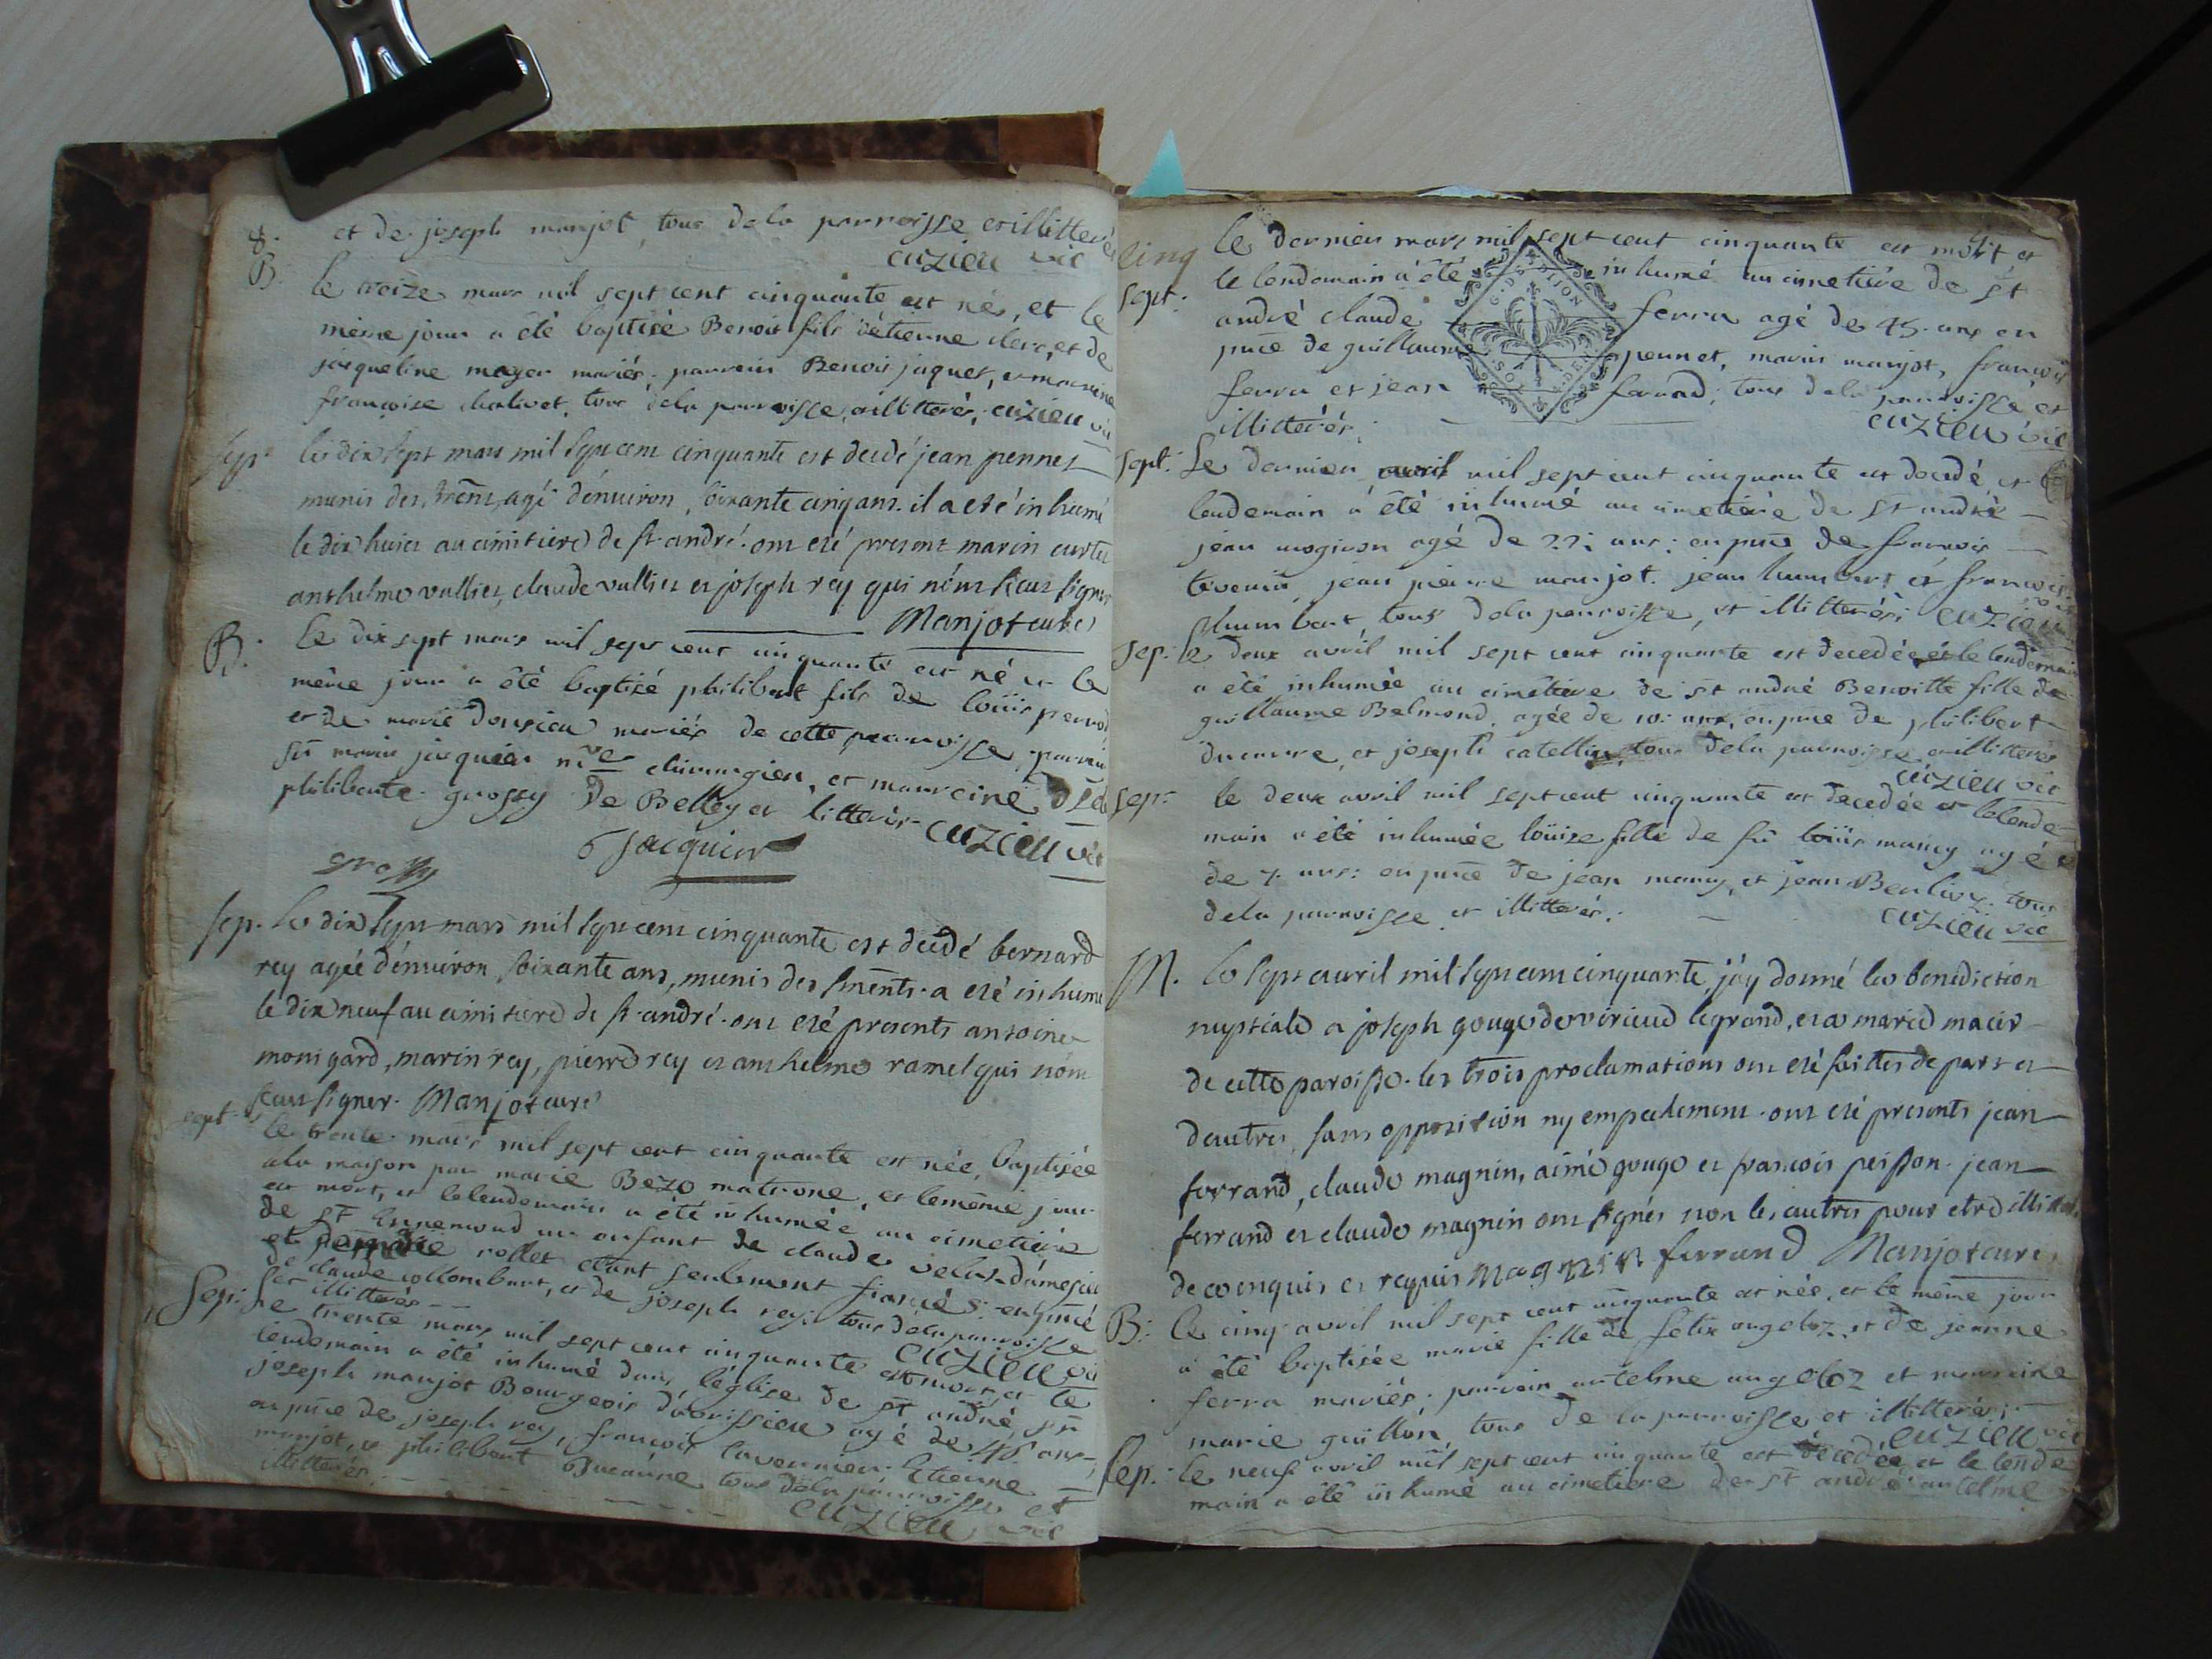 8. et de joseph manjot, tous dela parroisse et illitterés
cuzieu vic
B. le treize mars mil sept cent cinquante est né, et le
même jour a été baptisé Benoit fils détienne clerc, et de
jacqueline mayer mariés; parrein Benoit jaquet, et marreine
francoise chalivet, tous dela parroisse, et illitterés, cuzieu vic
sep. le dix sept mars mil sept cent cinquante est decedé jean pennet
munis des agé dénuiron soixante cinq ans. il a eté inhumé
le dix huict au cimitiere de st. andré. ont eté present marin curtet
anthelme vallier, claude vallier et joseph rey qui nónt sceus signer
Manjot curé
B. le dix sept mars mil sept cent cinquante est né et le
même jour a été baptizé philibert fils de loüis perrod
et de marie dousieu mariés de cette parroisse, parrein
sr marin jacquier mre chirurgien, et marreine
philiberte grossy de Belley et litterés cuzieu vic
Jacquier
grossy
sep. le dix sept mars mil sept cent cinquante est decedé bernard
rey agée dénuiron soixante ans, munis des a eté inhumé
le dix neuf au cimitiere de st. andré. ont eté presents antoine
monigard, marin rey, pierre rey et anthelme ramel qui nónt
sceu signer. Manjot curé
sept. le trente mars mil sept cent cinquante est née, baptisée
ala maison par marie Bezo matrone, et lemême jour
est mort, et lelendemain a été inhumée au cimetiére
de st Ennemond un enfant de claude
et rollet etant seulement fiancés: en pñce
de claude collombert, et de joseph rey: tous dela parroisse
et illitterés cuzieu vic
Sep: Le trente mars mil sept cent cinquante est mort, et le
lendemain a été inhumé dans léglise de st andré, sr
joseph manjot Bourgeois agé de 46 ans;
en pñce de joseph rey, francois tavernier, Etienne
manjot, et philibert Ducarre tous dela parroisse et
illitterés
cuzieu vic
cinq
sept: le dernier mars mil sept cent cinquante est mort et
le lendemain a été inhumé au cimetiére de st
G. DE DIJON
andré claude ferra agé de 45. ans en
pñce de guillaume pennet, marin manjot, francois
ferra et jean ferrand; tous dela parroisse, et
illitterés; cuzieu vic
sept: Le dernier avril mil sept cent cinquante est decedé et le
lendemain a été inhumé au cimetiére de st andré
jean mogiron agé de 22: ans: en pñce de francois
tevenin, jean pierre manjot. jean humbert et francois
humbert tous dela parroisse, et illitterés; cuzieu vic
sep: le deux avril mil sept cent cinquante est decedée et le lendemain
a été inhumée au cimétiére de st andré Benoitte fille de
guillaume Belmond, agée de 10: ans, en pñce de philibert
ducarre, et joseph catellin, tous dela parroisse et illitterés
cuzieu vic
sep: le deux avril mil sept cent cinquante est decedée et lelende
main a été inhumée loüize fille de fü loüis mancy agée
de 7. ans: en pñce de jean mancy, et jean Berlioz. tous
dela parroisse, et illitterés. cuzieu vic
M. le sept auril mil sept cent cinquante, jáy donné la benediction
nuptiale a joseph gouge de virieud legrand, et a marie macir
de cette paroisse. les trois proclamations ont eté faittes de part et
dautres, sans opposition ny empechement. ont eté presents jean
ferrand, claude magnin, aimé gouge et francois peisson. jean
ferrand et claude magnin ont signés non les autres pour etre illiterés
de ce enquis et requis Magnin ferrand Manjot curé
B: le cinq avril mil sept cent cinquante est née, et le même jour
a été baptisée marie fille de felix angeloz, et de jeanne
ferra mariés; parrein antelme angeloz et marreine
marie guillon, tous de la parroisse, et illitterés; cuzieu vic
sep: le neuf avril mil sept cent cinquante est decedée et le lende
main a été inhumé au cimetiere de st andré antelme